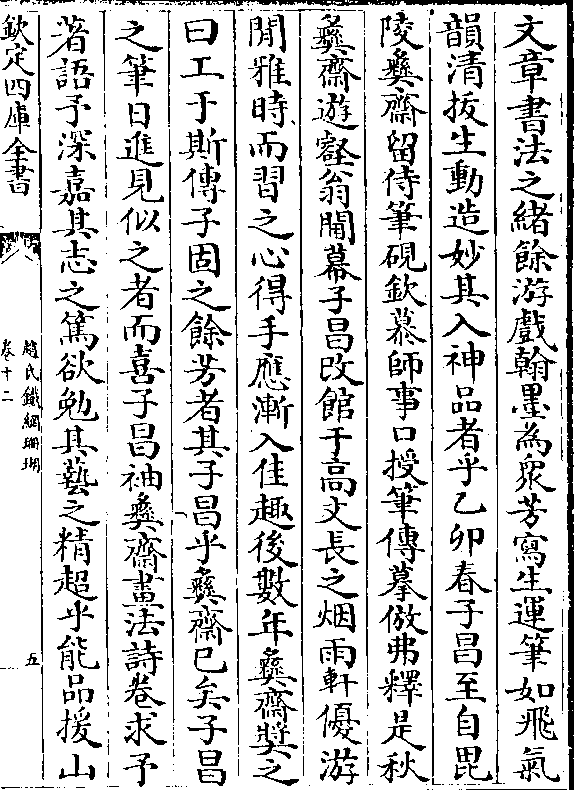 文章書法之緒餘游戲翰墨為衆芳寫生運筆如飛氣
韻清拔生動造妙其入神品者乎乙卯春子昌至自毘
陵彝齋留侍筆硯欽慕師事口授筆傳摹倣弗釋是秋
彝齋遊壑翁閫幕子昌改館于高丈長之烟雨軒優游
閒雅時而習之心得手應漸入佳趣後數年彝齋奬之
曰工于斯傳子固之餘芳者其子昌乎彝齋已矣子昌
之筆日進見似之者而喜子昌袖彝齋畫法詩卷求予
著語予深嘉其志之篤欲勉其藝之精超乎能品援山
欽定四庫全書
趙氏鐵網珊瑚
卷十二
五